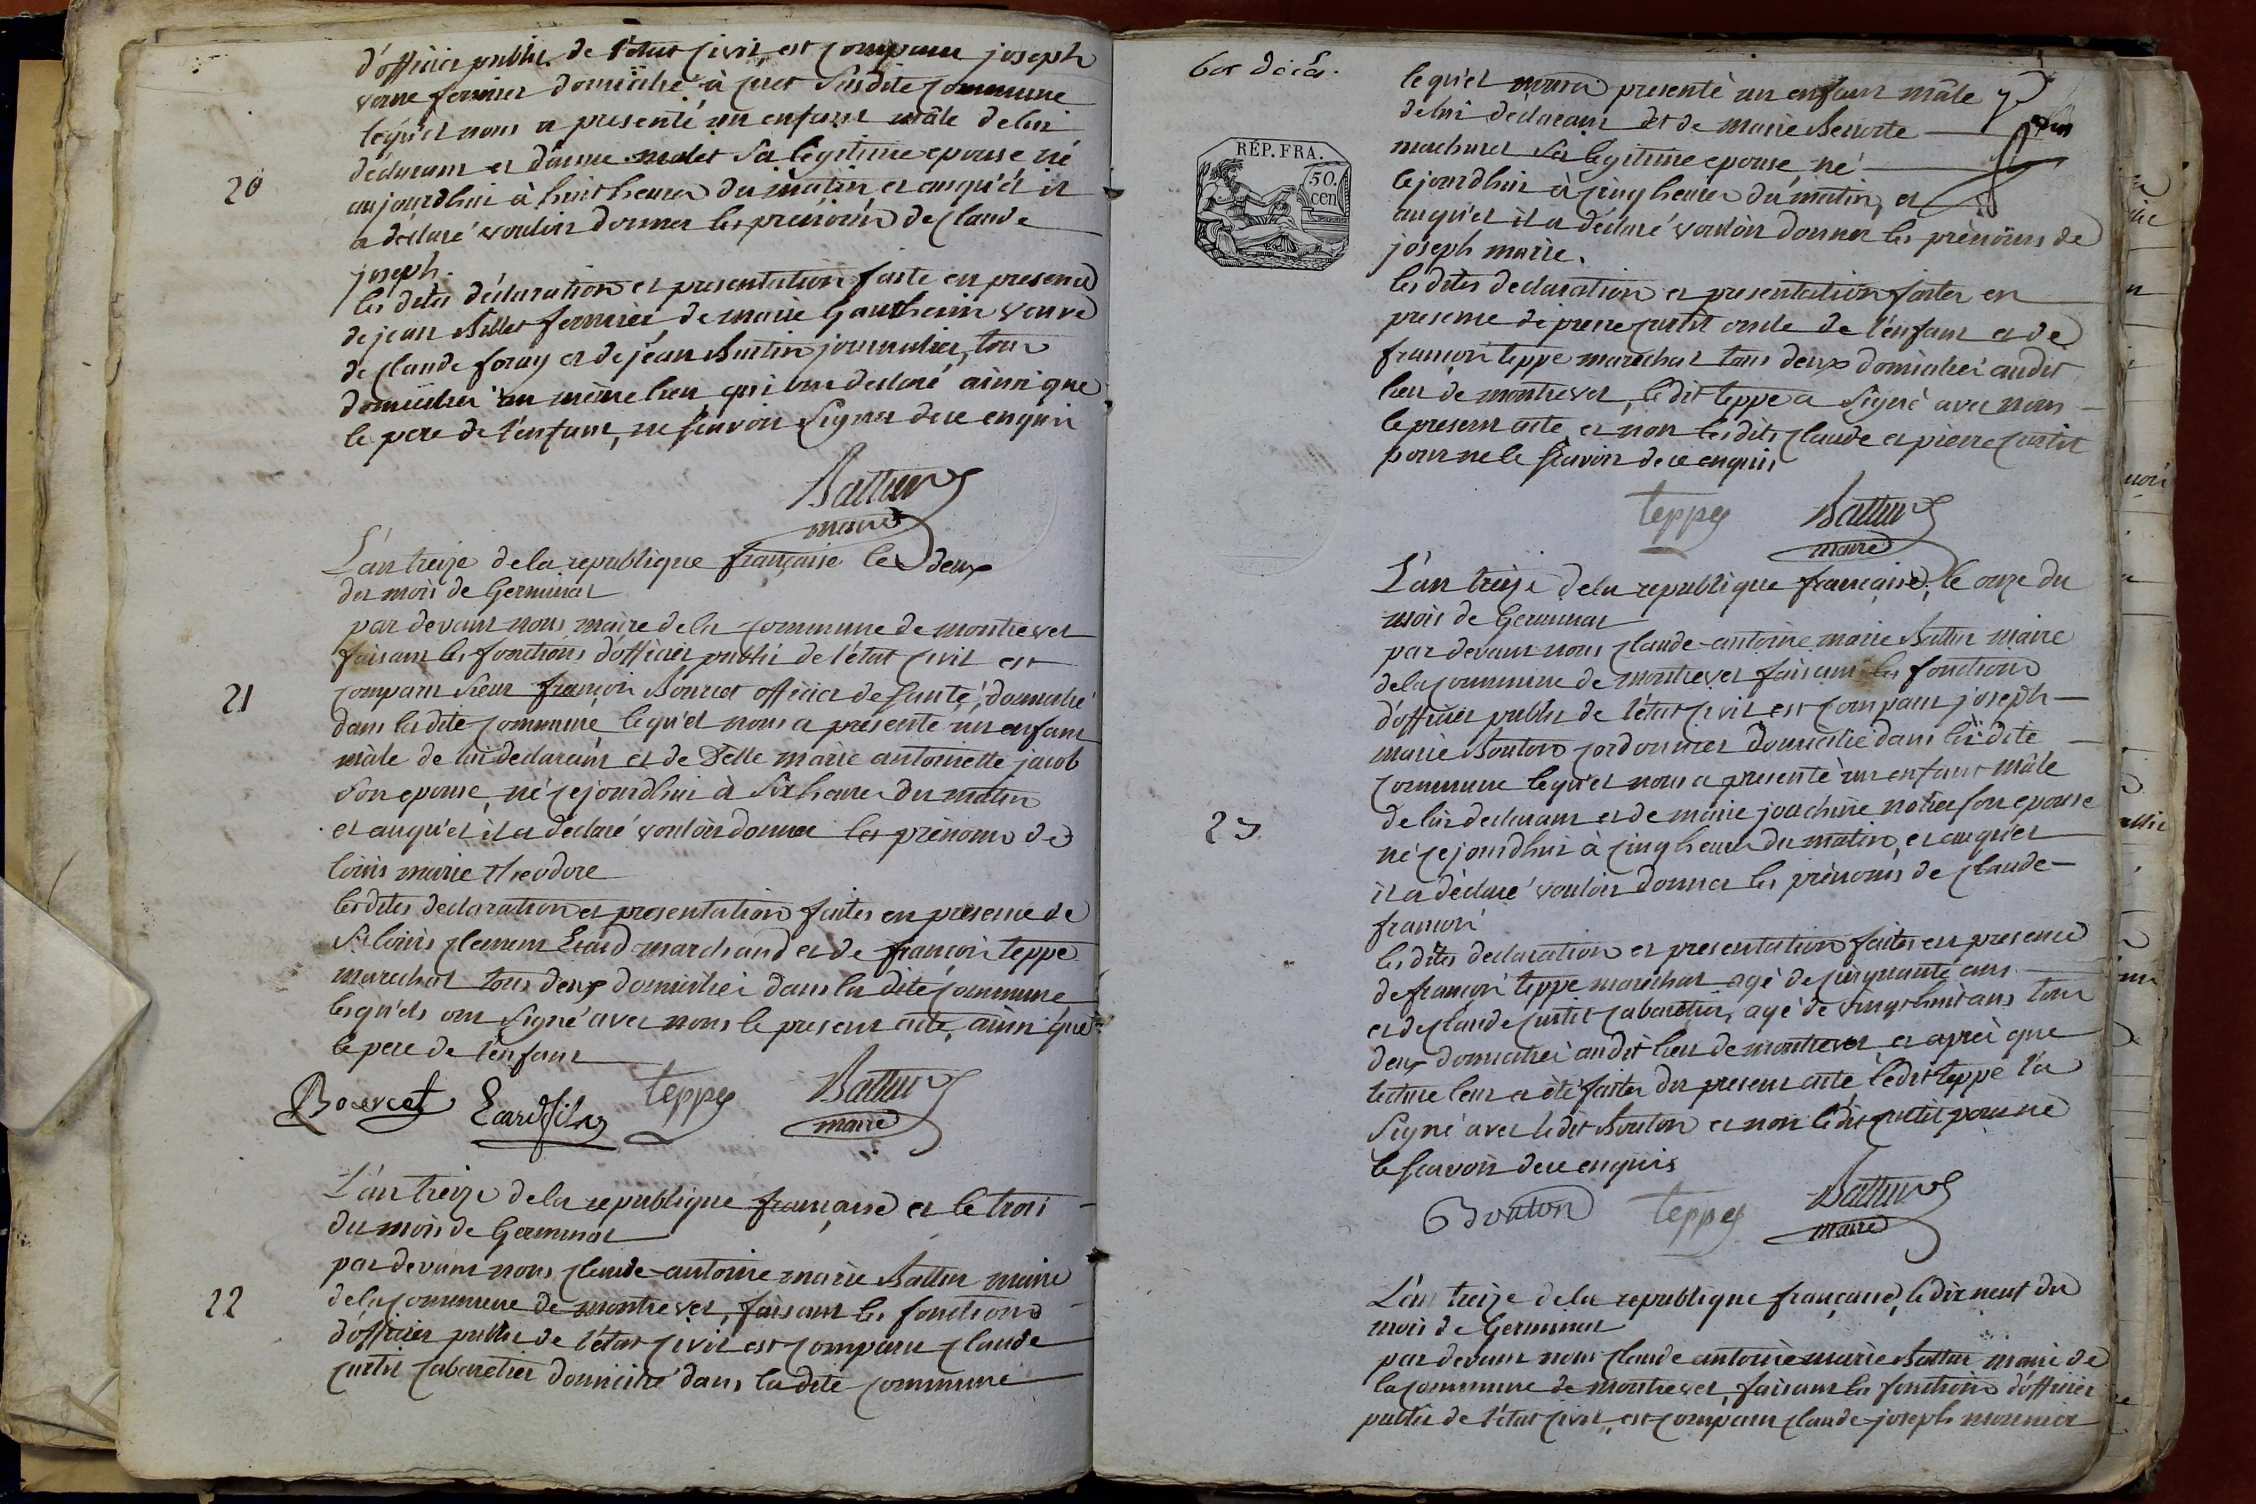 d'officier public de l'état civil, est comparu joseph
fermier domicilié à susdite commune
lequel nous a presenté un enfant mâle de lui
déclarant et d'anne malet sa légitime epouse né
20
aujourdhui à huit heures du matin, et auquel il
a déclaré vouloir donner les prénoms de claude
joseph.
les dites déclaration et presentation faite en presence
de jean Billet fermier, de marie Gautheret veuve
de claude foray et de jean Burtin journalier, tous
domiciliés au même lieu, qui ont declaré ainsi que
le pere de l'enfant, ne sçavoir signer de ce enquis
Battur
maire
L'an treize de la republique française le deux
du mois de Germinal
par devant nous maire de la commune de montrevel
faisant les fonctions d'officier public de l'état civil est
21
comparu sieur françois Bourcet officier de santé, domicilié
dans la dite commune, lequel nous a presenté un enfant
mâle de lui declarant et de Delle marie antoinette jacob
son epouse, né cejourdhui à six heures du matin
et auquel il a déclaré vouloir donner les prénoms de
louis marie theodore
les dites declaration et presentation faites en presence de
Sr louis clement Eard marchand et de françois teppe
marechal tous deux domiciliés dans la dite commune
lesquels ont signé avec nous le present acte, ainsi que
le pere de l'enfant
Bourcet Eard fils teppe Battur
maire
L'an treize de la republique française et le trois
du mois de Germinal
par devant nous claude antoine marie Battur maire
22
de la commune de montrevel, faisant les fonctions
d'officier public de l'état civil est comparu claude
curtil cabaretier domicilié dans la dite commune
REP. FRA.
50.
cen
lequel nous a presenté un enfant mâle
de lui déclarant et de marie Benoite
machurat sa legitime epouse, né
cejourdhui à cinq heures du matin, et
auquel il a déclaré vouloir donner les prénoms de
joseph marie.
les dites declaration et presentation faites en
presence de pierre curtil oncle de l'enfant et de
françois teppe marechal tous deux domiciliés audit
lieu de montrevel, le dit teppe a signé avec nous
le present acte et non lesdits claude et pierre curtil
pour ne le sçavoir de ce enquis
teppe Battur
maire
L'an treize de la republique française, le onze du
mois de Germinal
par devant nous claude-antoine marie Battur maire
de la commune de montrevel faisant les fonctions
d'officier public de l'état civil est comparu joseph
marie Bouton cordonnier domicilié dans la dite
commune lequel nous a presenté un enfant mâle
de lui declarant et de marie joachine son epouse
23.
né cejourdhui à cinq heures du matin, et auquel
il a déclaré vouloir donner les prénoms de claude
françois
les dites declaration et presentation faites en presence
de françois teppe marechal agé de cinquante ans
et de claude curtil cabaretier, agé de vingt huit ans tous
deux domiciliés audit lieu de montrevel et après que
lecture leur a été faite du present acte, ledit teppe l'a
signé avec le dit Bouton et non le dit curtil pour ne
le sçavoir de ce enquis
Bouton teppe Battur
maire
L'an treize de la republique française, le dix neuf du
mois de Germinal
par devant nous claude antoine marie Battur maire de
la commune de montrevel, faisant les fonctions d'officier
public de l'état civil, est comparu claude-joseph monnier